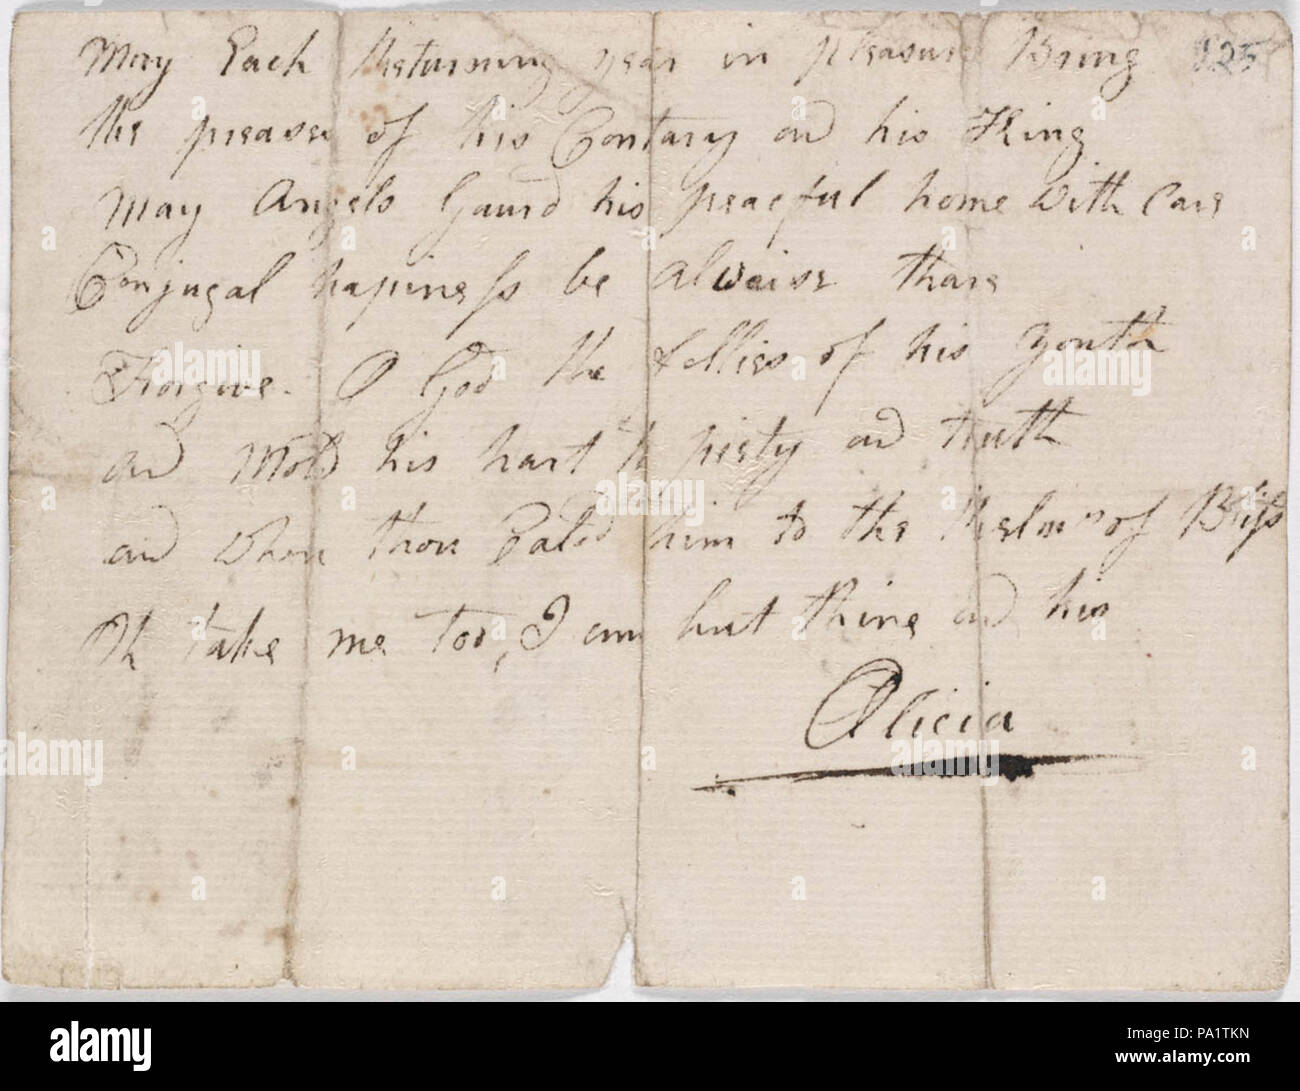 May Each Returning year in pleasure Bring 125
the preasen of his Contary and his King
May Angels Gaurd his peaceful home with Care
Conjugal hapiness be alwaise thare
Forgive. O God the follies of his Youth
and Mold his hart to piety and truth
and when thou him to the Relms of Bliss
Oh take me too, I am but thine and his
Alicia
alamy
alamy
PA1TKN
www.alamy.com